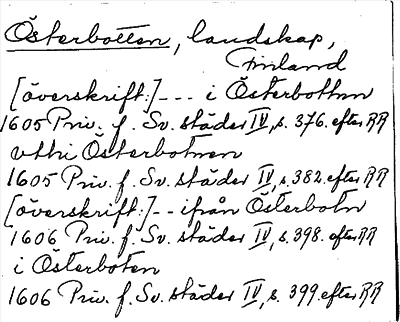 Österbotten, landskap,
Finland
[överskrift:] --- i Österbottnn
1605 Priv. f. Sv. städer IV, s. 376. efter RR
vthi Österbotnen
1605 Priv. f. Sv. städer IV, s. 382. efter RR
[överskrift:] -- ifrån Österbotn
1606 Priv. f. Sv. städer IV, s. 398. efter RR
i Österboten
1606 Priv. f. Sv. städer IV, s. 399. efter RR